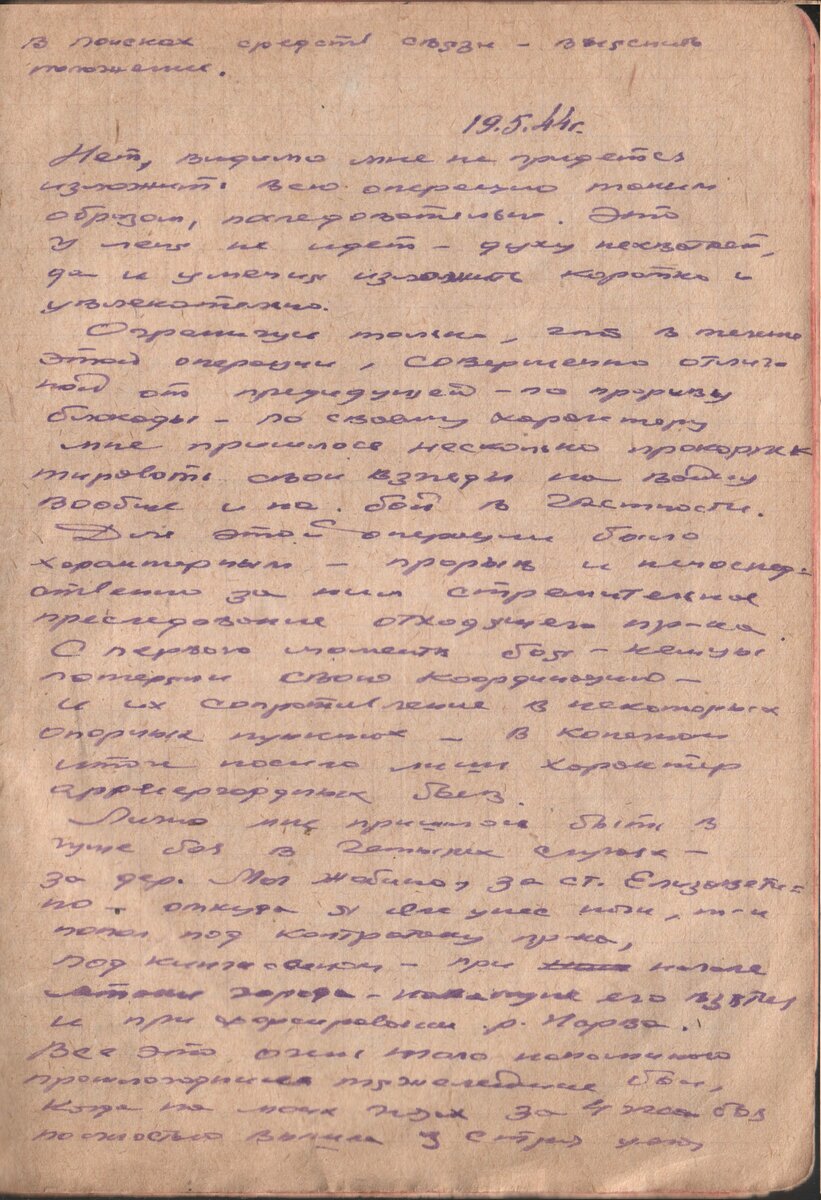 в поисках средств связи – выяснить
положение.
19.5.44г.
Нет, видимо мне не придется
изложить всю операцию таким
образом, последовательно. Это
у меня не идет – духу нехватает,
да и умения изложить коротко и
увлекательно.
Ограничусь только, что в
этой операции, совершенно отлич-
ной от предидущей – по прорыву
блокады – по своему характеру
мне пришлось несколько прокоррек
тировать свои взгляды на войну
вообще и на бой в частности.
Для этой операции было
характерным – прорыв и непосред-
ственно за ним стремительное
преследование отходящего пр-ка.
С первого момента боя – немцы
потеряли свою координацию –
и их сопротивление в некоторых
опорных пунктах – в конечном
итоге носило лишь характер
арриергардных боев.
Лично мне пришлось быть в
гуще боя в четырех случаях –
за дер. Мал Жабино, за ст. Елизавети-
но – откуда я еле унес ноги, т-к
попал под контратаку пр-ка,
под Кингисеппом – при начале
атаки города – накануне его взятия
и при форсировании р. Нарва.
Все это очень мало напоминало
прошлогодние тяжелейшие бои,
когда на моих глазах за 4 часа боя
полностью вышла из строя